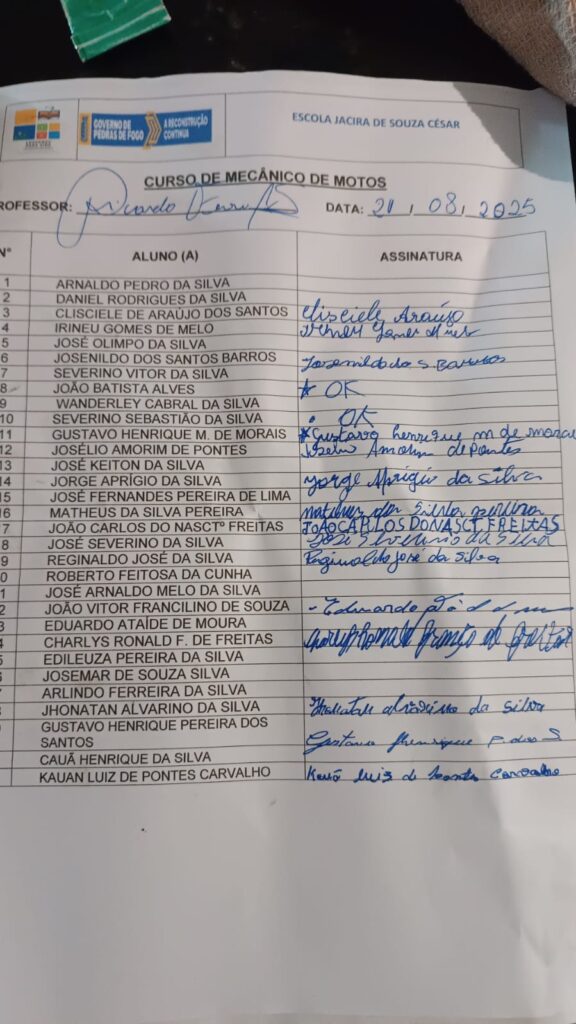 GOVERNO DE PEDRAS DE FOGO A RECONSTRUÇÃO CONTINUA
ESCOLA JACIRA DE SOUZA CÉSAR
CURSO DE MECÂNICO DE MOTOS
ROFESSOR: Ricardo DATA: 21 / 08 / 2025
N° ALUNO (A) ASSINATURA
1 ARNALDO PEDRO DA SILVA
2 DANIEL RODRIGUES DA SILVA
3 CLISCIELE DE ARAÚJO DOS SANTOS Clisciele Araújo
4 IRINEU GOMES DE MELO
5 JOSÉ OLIMPO DA SILVA
6 JOSENILDO DOS SANTOS BARROS Josenildo dos S. Barros
7 SEVERINO VITOR DA SILVA
8 JOÃO BATISTA ALVES * OK
9 WANDERLEY CABRAL DA SILVA
10 SEVERINO SEBASTIÃO DA SILVA • OK
11 GUSTAVO HENRIQUE M. DE MORAIS *Gustavo henrique m de morai
12 JOSÉLIO AMORIM DE PONTES Josélio Amorim de Pontes
13 JOSÉ KEITON DA SILVA
14 JORGE APRÍGIO DA SILVA Jorge Aprígio da silva
15 JOSÉ FERNANDES PEREIRA DE LIMA
16 MATHEUS DA SILVA PEREIRA matheus da Silva pereira
7 JOÃO CARLOS DO NASCTº FREITAS JOÃO CARLOS DO NASCT. FREITAS
8 JOSÉ SEVERINO DA SILVA José Severino da Silva
9 REGINALDO JOSÉ DA SILVA Reginaldo josé da silva
0 ROBERTO FEITOSA DA CUNHA
1 JOSÉ ARNALDO MELO DA SILVA
2 JOÃO VITOR FRANCILINO DE SOUZA
3 EDUARDO ATAÍDE DE MOURA - Eduardo
4 CHARLYS RONALD F. DE FREITAS
5 EDILEUZA PEREIRA DA SILVA
JOSEMAR DE SOUZA SILVA
ARLINDO FERREIRA DA SILVA
JHONATAN ALVARINO DA SILVA da silva
GUSTAVO HENRIQUE PEREIRA DOS
SANTOS Gustavo Henrique P dos S
CAUÃ HENRIQUE DA SILVA
KAUAN LUIZ DE PONTES CARVALHO Kauã luis de Pontes Carvalho